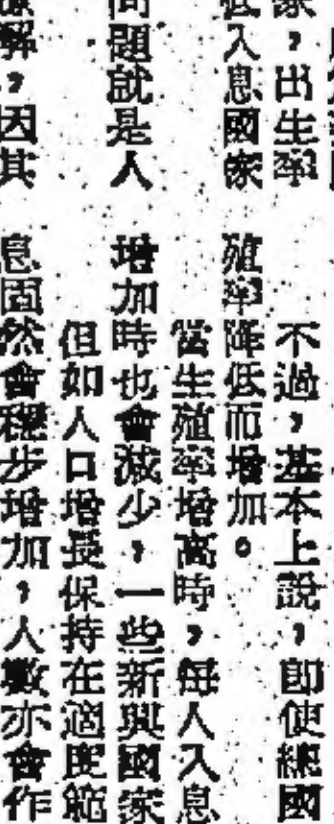 家，出生率
低入息國家
問題就是人
解，因其
不過，基本上說，即使總國
殖率降低而增加。
當生殖率增高時，每人入息
增加時也會減少，一些新興國家
但如人口增長保持在適度範
息固然會穩步增加，人數亦會作